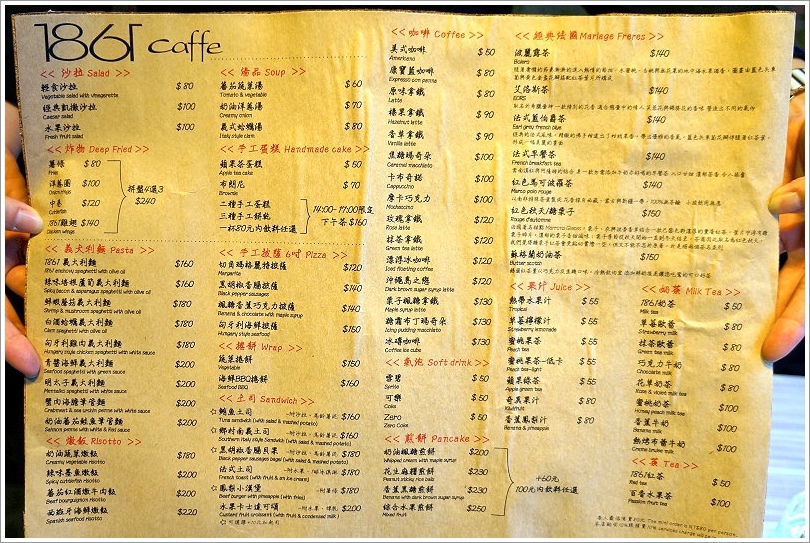 1861 caffe
<< 沙拉 Salad >>
輕食沙拉 $80
Vegetable salad with vinegarette
經典凱撒沙拉 $100
Caesar salad
水果沙拉 $100
Fresh fruit salad
<< 炸物 Deep Fried >>
薯條 $80
Fries
洋蔥圈 $100
Onion rings
中卷 $120
Cuttlefish
1861雞翅 $140
Chicken wings
拼盤4選3
$240
<< 義大利麵 Pasta >>
1861義大利麵 $160
1861 anchovy spaghetti with olive oil
辣味培根蘆筍義大利麵 $160
Spicy bacon & asparagus spaghetti with olive oil
鮮蝦蘑菇義大利麵 $180
Shrimp & mushroom spaghetti with olive oil
白酒蛤蠣義大利麵 $180
Clam spaghetti with olive oil
匈牙利雞肉義大利麵 $180
Hungary style chicken spaghetti with white sauce
青醬海鮮義大利麵 $200
Seafood spaghetti with green sauce
明太子義大利麵 $200
Mentaiko spaghetti with white sauce
蟹肉海膽筆管麵 $200
Crabmeat & sea urchin penne with white sauce
奶油蕃茄鮭魚筆管麵 $200
Salmon penne with white & Red sauce
<< 燉飯 Risotto >>
奶油蔬菜燉飯 $180
Creamy vegetable risotto
辣味墨魚燉飯 $200
Spicy cuttlefish risotto
蕃茄紅酒燉牛肉飯 $200
Beef bourguignon risotto
西班牙海鮮燉飯 $220
Spanish seafood risotto
<< 湯品 Soup >>
蕃茄蔬菜湯 $60
Tomato & vegetable
奶油洋蔥湯 $70
Creamy onion
義式蛤蠣湯 $80
Italy style clam
<< 手工蛋糕 Handmade cake >>
蘋果茶蛋糕 $50
Apple tea cake
布朗尼 $70
Brownies
二種手工蛋糕
三種手工餅乾
一杯80元內飲料任選
14:00-17:00限定
下午茶$160
<< 手工披薩 6吋 Pizza >>
切角瑪格麗特披薩 $120
Margarita
黑胡椒香腸披薩 $140
Black pepper sausages
楓糖香蕉巧克力披薩 $140
Banana & chocolate with maple syrup
匈牙利海鮮披薩 $150
Hungary style seafood
<< 捲餅 Wrap >>
蔬菜捲餅 $150
Vegetable
海鮮BBQ捲餅 $160
Seafood BBQ
<< 土司 Sandwich >>
鮪魚土司 -附沙拉、馬鈴薯泥 $160
Tuna sandwich (with salad & mashed potato)
鄉村南義土司 -附沙拉、馬鈴薯泥 $160
Southern Italy style Sandwich (with salad & mashed potato)
黑胡椒香腸貝果 -附沙拉、馬鈴薯泥 $180
Black pepper sausages bagel (with salad & mashed potato)
法式土司
French toast (with fruit & an ice cream)
鳳梨小漢堡
Beef burger with pineapple (with fries)
水果卡士達可頌 $200
Custard fruit croissant (with fruit & condensed milk)
<< 咖啡 Coffee >>
美式咖啡 $50
Americano
康寶藍咖啡 $80
Espresso con panna
原味拿鐵 $80
Latte
榛果拿鐵 $90
Hazelnut latte
香草拿鐵 $90
Vanilla latte
焦糖瑪奇朵 $100
Caramel macchiato
卡布奇諾 $100
Cappuccino
摩卡巧克力 $100
Mochaccino
玫瑰拿鐵 $120
Rose latte
抹茶拿鐵 $120
Green tea latte
漂浮冰咖啡 $120
Iced floating coffee
沖繩島之戀 $120
Dark brown sugar syrup latte
栗子楓糖拿鐵 $130
Maple syrup latte
糖霜布丁瑪奇朵 $130
Icing pudding macchiato
冰磚咖啡 $130
Coffee ice cube
<< 氣泡 Soft drink >>
雪碧 $50
Sprite
可樂 $50
Coke
Zero $50
Zero Coke
<< 煎餅 Pancake >>
奶油楓糖煎餅 $200
Whipped cream with maple syrup
花生麻糬煎餅 $230
Peanut sticky rice balls
香蕉黑糖煎餅 $230
Banana with dark brown sugar syrup
綜合水果煎餅 $250
Mixed fruit
+60元
100元內飲料任選
<< 經典法國 Mariage Freres >>
波麗露茶 $140
Bolero
艾洛斯茶 $140
EORS
法式藍伯爵茶 $140
Earl grey french blue
法式早餐茶 $140
French breakfast tea
紅色馬可波羅茶 $140
Marco polo rouge
紅色秋天/糖栗子 $150
Rouge d'automne
蘇格蘭奶油茶 $150
Butter scotch
<< 果汁 Juice >>
熱帶水果汁 $55
Tropical
草莓檸檬汁 $55
Strawberry lemonade
蜜桃果茶 $55
Peach tea
蜜桃果茶-低卡 $55
Peach tea-light
蘋果綠茶 $55
Apple green tea
奇異果汁 $80
Kiwifruit
香蕉鳳梨汁 $80
Banana & pineapple
<< 奶茶 Milk Tea >>
1861奶茶 $50
Milk tea
草莓歐蕾 $80
Strawberry milk
抹茶歐蕾 $80
Green milk tea
巧克力牛奶 $80
Chocolate milk
花草奶茶 $80
Rose & violet milk tea
蜜桃奶茶 $100
Honey peach milk tea
香蕉牛奶 $100
Banana milk
熱烤布蕾牛奶 $100
Creme brulee milk
<< 茶 Tea >>
1861紅茶 $50
Red tea
百香水果茶 $100
Passion fruits tea